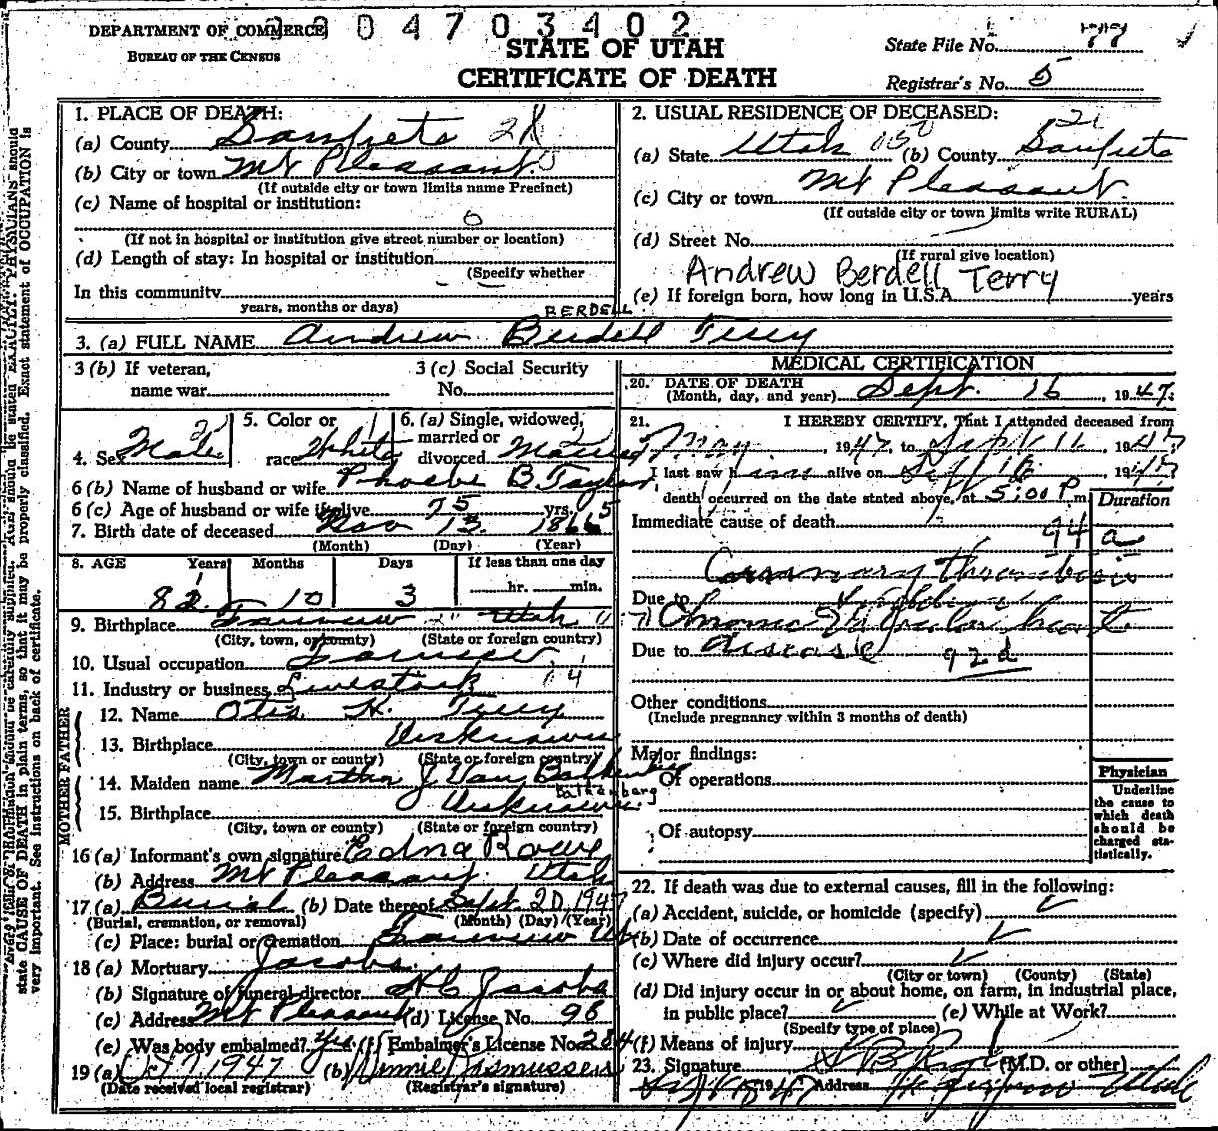 DEPARTMENT OF COMMERCE
BUREAU OF THE CENSUS
04703402
STATE OF UTAH
CERTIFICATE OF DEATH
State File No. 77
Registrar's No. 5
1. PLACE OF DEATH:
(a) County Sanpete
(b) City or town Mt Pleasant
(If outside city or town limits name Precinct)
(c) Name of hospital or institution:
0
(If not in hospital or institution give street number or location)
(d) Length of stay: In hospital or institution
(Specify whether
In this community
years, months or days)
2. USUAL RESIDENCE OF DECEASED:
(a) State Utah (b) County Sanpete
(c) City or town Mt Pleasant
(If outside city or town limits write RURAL)
(d) Street No.
(If rural give location)
Andrew Berdell Terry
(e) If foreign born, how long in U.S.A. years
BERDELL
3. (a) FULL NAME Andrew Berdell Terry
3 (b) If veteran,
name war
3 (c) Social Security
No.
4. Sex Male
5. Color or
race White
6. (a) Single, widowed,
married or
divorced Married
6 (b) Name of husband or wife Phoebe B Taylor
6 (c) Age of husband or wife if alive 75 yrs.
7. Birth date of deceased Nov 13 1865
(Month) (Day) (Year)
8. AGE Years Months Days If less than one day
82 10 3 hr. min.
9. Birthplace Fairview Utah
(City, town, or county) (State or foreign country)
10. Usual occupation
11. Industry or business Livestock
FATHER
12. Name Otis H. Terry
13. Birthplace Unknown
(City, town or county) (State or foreign country)
MOTHER
14. Maiden name Martha J Van
15. Birthplace Unknown
(City, town or county) (State or foreign country)
16 (a) Informant's own signature Edna Rowe
(b) Address Mt Pleasant Utah
17 (a) Burial (b) Date thereof Sept. 20, 1947
(Burial, cremation, or removal) (Month) (Day) (Year)
(c) Place: burial or cremation Fairview Ut
18 (a) Mortuary Jacobs
(b) Signature of funeral director H C Jacobs
(c) Address Mt Pleasant (d) License No. 96
(e) Was body embalmed? Yes (f) Embalmer's License No. 284
19 (a) 1947 (b) Rasmussen
(Date received local registrar) (Registrar's signature)
MEDICAL CERTIFICATION
20. DATE OF DEATH
(Month, day, and year) Sept. 16, 1947.
21. I HEREBY CERTIFY, That I attended deceased from
May, 1947, to Sept 16 1947
I last saw him alive on Sept 16 1947
death occurred on the date stated above, at 5:00 P m.
Duration
Immediate cause of death
94 a
Coronary thrombosis
Due to
Chronic Valvular heart
Due to disease 92d
Other conditions
(Include pregnancy within 3 months of death)
Major findings:
Of operations
Of autopsy
Physician
Underline
the cause to
which death
should be
charged sta-
tistically.
22. If death was due to external causes, fill in the following:
(a) Accident, suicide, or homicide (specify)
(b) Date of occurrence
(c) Where did injury occur?
(City or town) (County) (State)
(d) Did injury occur in or about home, on farm, in industrial place,
in public place? (e) While at Work?
(Specify type of place)
(f) Means of injury
23. Signature (M.D. or other)
1947 Address Utah
state CAUSE OF DEATH in plain terms, so that it may be properly classified. Exact statement of OCCUPATION is
very important. See instructions on back of certificate.